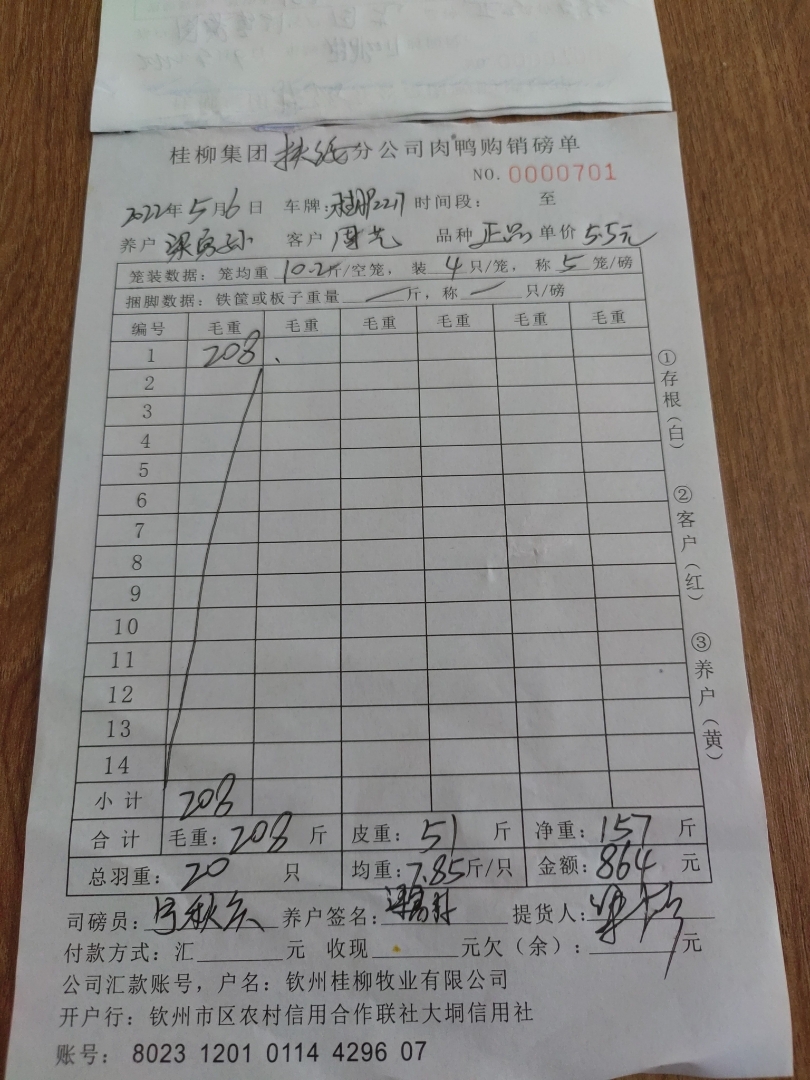 桂柳集团 分公司肉鸭购销磅单
NO. 0000701
2022年5月6日 车牌: 2217 时间段: 至
养户 客户 周艺 品种 正品 单价 5.5元
笼装数据: 笼均重 10.2斤/空笼, 装 4 只/笼, 称 5 笼/磅
捆脚数据: 铁筐或板子重量 — 斤, 称 — 只/磅
编号 毛重 毛重 毛重 毛重 毛重 毛重
1 208
2
3
4
5
6
7
8
9
10
11
12
13
14
小计 208
合计 毛重: 208 斤 皮重: 51 斤 净重: 157 斤
总羽重: 20 只 均重: 7.85斤/只 金额: 864 元
司磅员: 养户签名: 提货人:
付款方式: 汇 元 收现 元欠(余): 元
公司汇款账号, 户名: 钦州桂柳牧业有限公司
开户行: 钦州市区农村信用合作联社大垌信用社
账号: 8023 1201 0114 4296 07
①存根(白)
②客户(红)
③养户(黄)